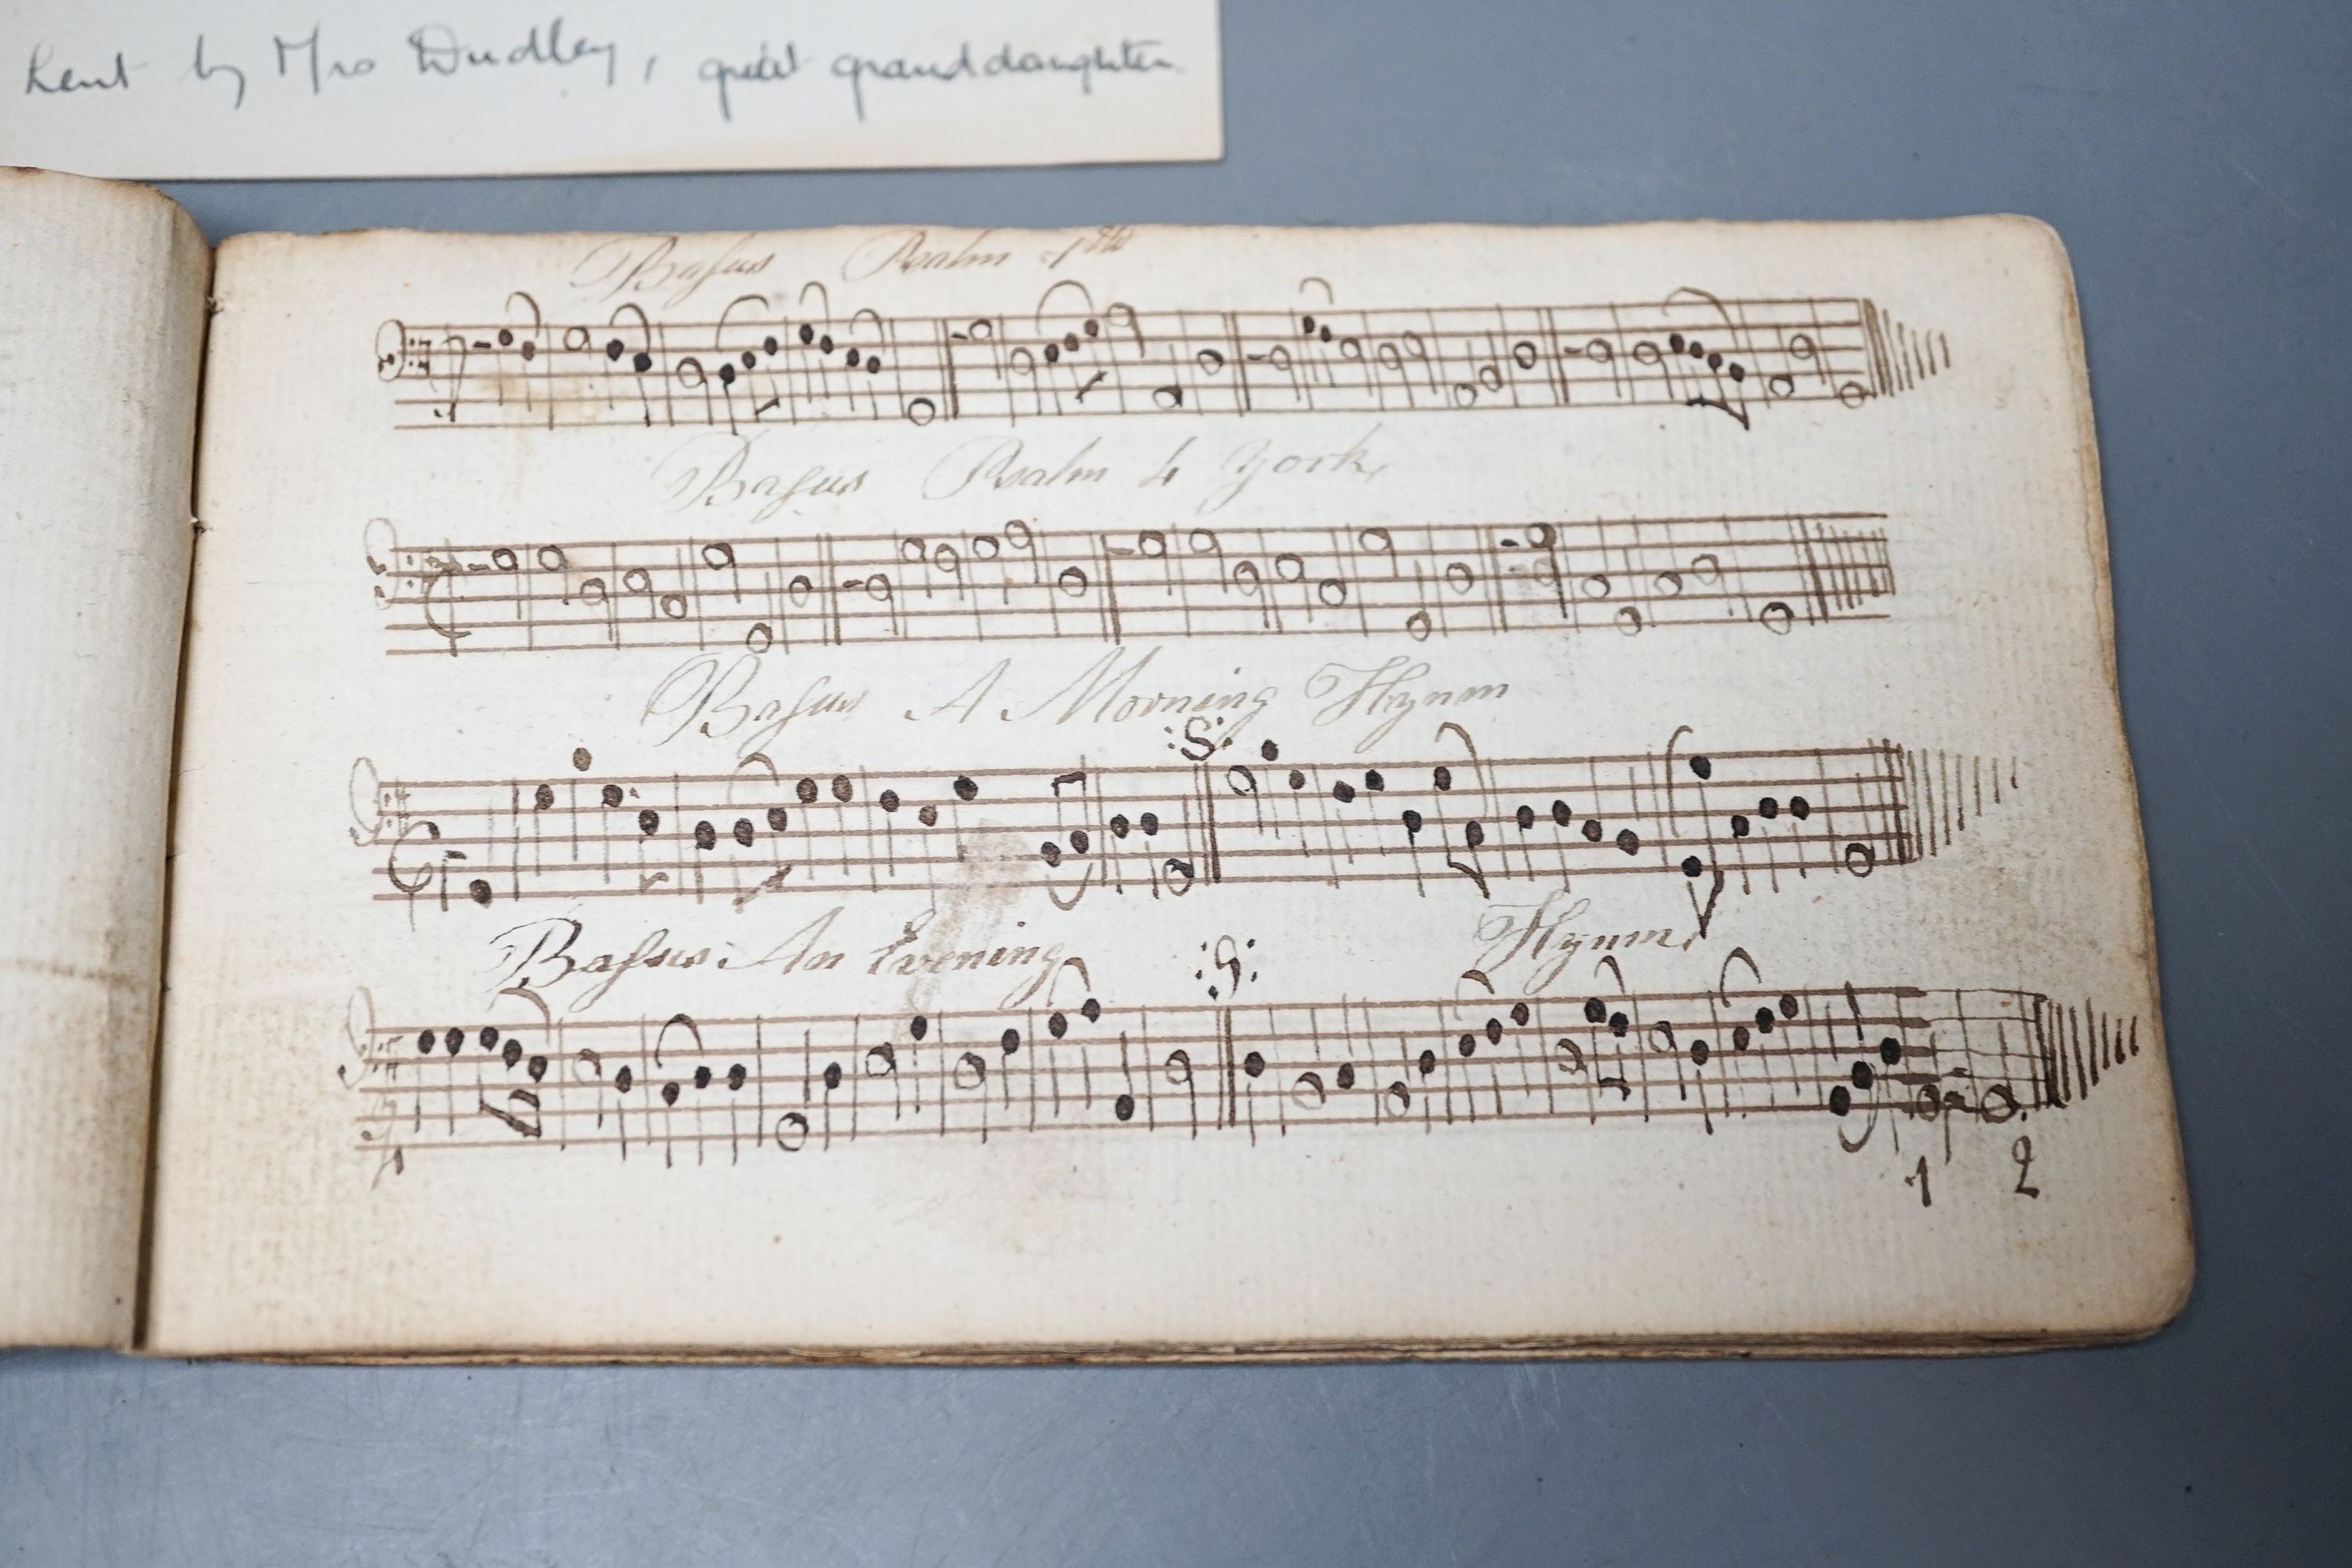 Lent by Mrs Dudley, great granddaughter
Baſus Psalm 1st
Baſus Psalm 4 York,
Baſus A Morning Hymn
:S:
Baſus: An Evening Hymn.
:S:
1 2